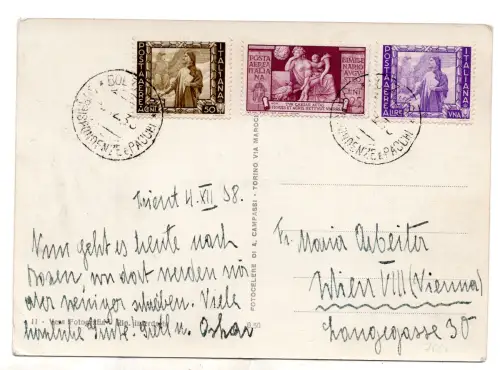 POSTA AEREA
ITALIANA
50
POSTA AEREA ITALIANA
BIMILLENARIO AUGUSTEO
CENT 25
POSTA AEREA
ITALIANA
LIRE VNA
CORRISPONDENZE E PACCHI
Trient 4. XII 38.
Nun geht es heute nach
Bozen, von dort werden wir
aber weniger schreiben. Viele
Grüße
u. Oskar
Fr. Maria Arbeiter
Wien VIII (Vienna)
Langegasse 30
FOTOCELERE DI A. CAMPASSI - TORINO VIA MAROCHETTI
11 - Vera Fotografia